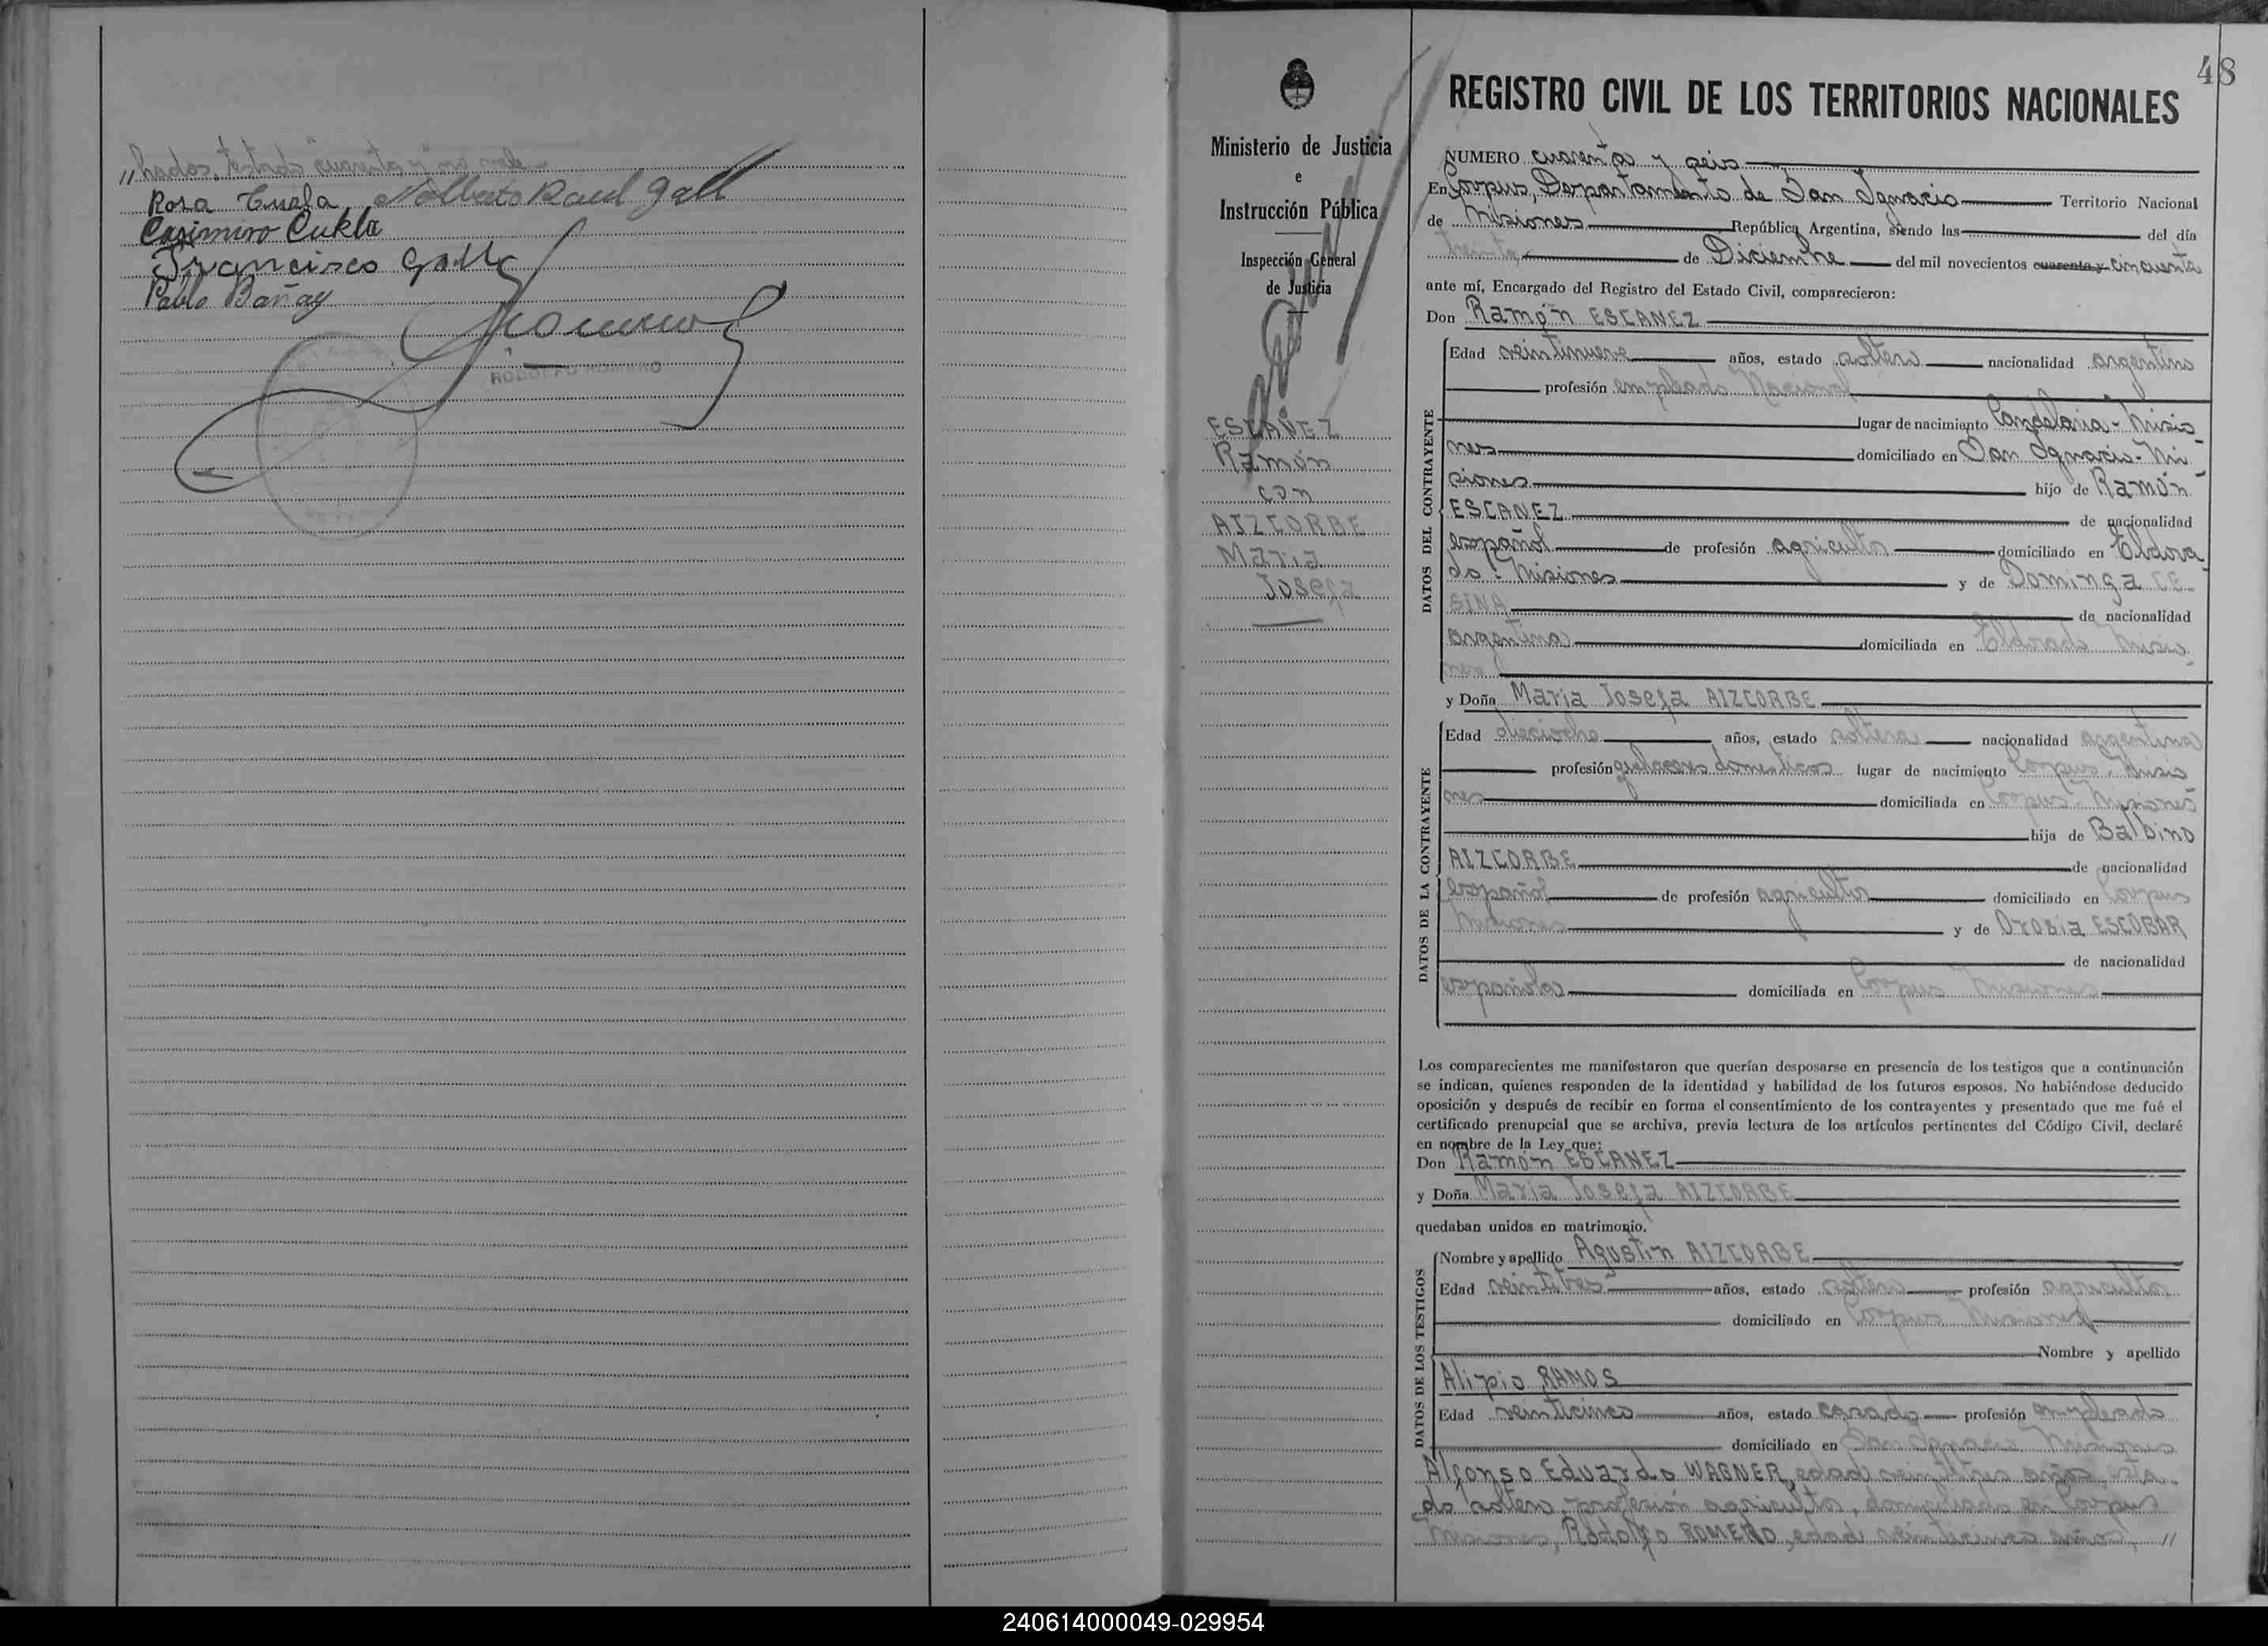 "hados, testado "cuarenta y" no vale-
Rosa Cukla Nolberto Raul Gall
Casimiro Cukla
Francisco Gall
Pablo Bañay
RODOLFO ROMERO
48
Ministerio de Justicia
e
Instrucción Pública
Inspección General
de Justicia
ESCANEZ
Ramón
con
AIZCORBE
María
Josefa
REGISTRO CIVIL DE LOS TERRITORIOS NACIONALES
NUMERO cuarenta y seis
En Corpus, Departamento de San Ignacio Territorio Nacional
de Misiones República Argentina, siendo las del día
treinta de Diciembre del mil novecientos cuarenta y cincuenta
ante mí, Encargado del Registro del Estado Civil, comparecieron:
Don Ramón ESCANEZ
DATOS DEL CONTRAYENTE
Edad veintinueve años, estado soltero nacionalidad argentino
profesión empleado Nacional
lugar de nacimiento Candelaria - Misio
nes domiciliado en San Ignacio - Mi
siones hijo de Ramón
ESCANEZ de nacionalidad
español de profesión agricultor domiciliado en Eldora
do - Misiones y de Dominga CE-
SINA de nacionalidad
argentina domiciliada en Eldorado Misio
nes
y Doña María Josefa AIZCORBE
DATOS DE LA CONTRAYENTE
Edad dieciocho años, estado soltera nacionalidad argentina
profesión quehaceres domesticos lugar de nacimiento Corpus - Misio
nes domiciliada en Corpus - Misiones
hija de Balbino
AIZCORBE de nacionalidad
español de profesión agricultor domiciliado en Corpus
Misiones y de Orosia ESCOBAR
de nacionalidad
española domiciliada en Corpus Misiones
Los comparecientes me manifestaron que querían desposarse en presencia de los testigos que a continuación
se indican, quienes responden de la identidad y habilidad de los futuros esposos. No habiéndose deducido
oposición y después de recibir en forma el consentimiento de los contrayentes y presentado que me fué el
certificado prenupcial que se archiva, previa lectura de los artículos pertinentes del Código Civil, declaré
en nombre de la Ley que:
Don Ramón ESCANEZ
y Doña María Josefa AIZCORBE
quedaban unidos en matrimonio.
DATOS DE LOS TESTIGOS
Nombre y apellido Agustín AIZCORBE
Edad veintitres años, estado soltero profesión agricultor
domiciliado en Corpus Misiones
Nombre y apellido
Alipio RAMOS
Edad veinticinco años, estado casado profesión empleado
domiciliado en San Ignacio Misiones
Alfonso Eduardo WAGNER, edad veintitres años, esta-
do soltero, profesión agricultor, domiciliado en Corpus
Misiones, Rodolfo ROMERO, edad veinticinco años, //
240614000049-029954